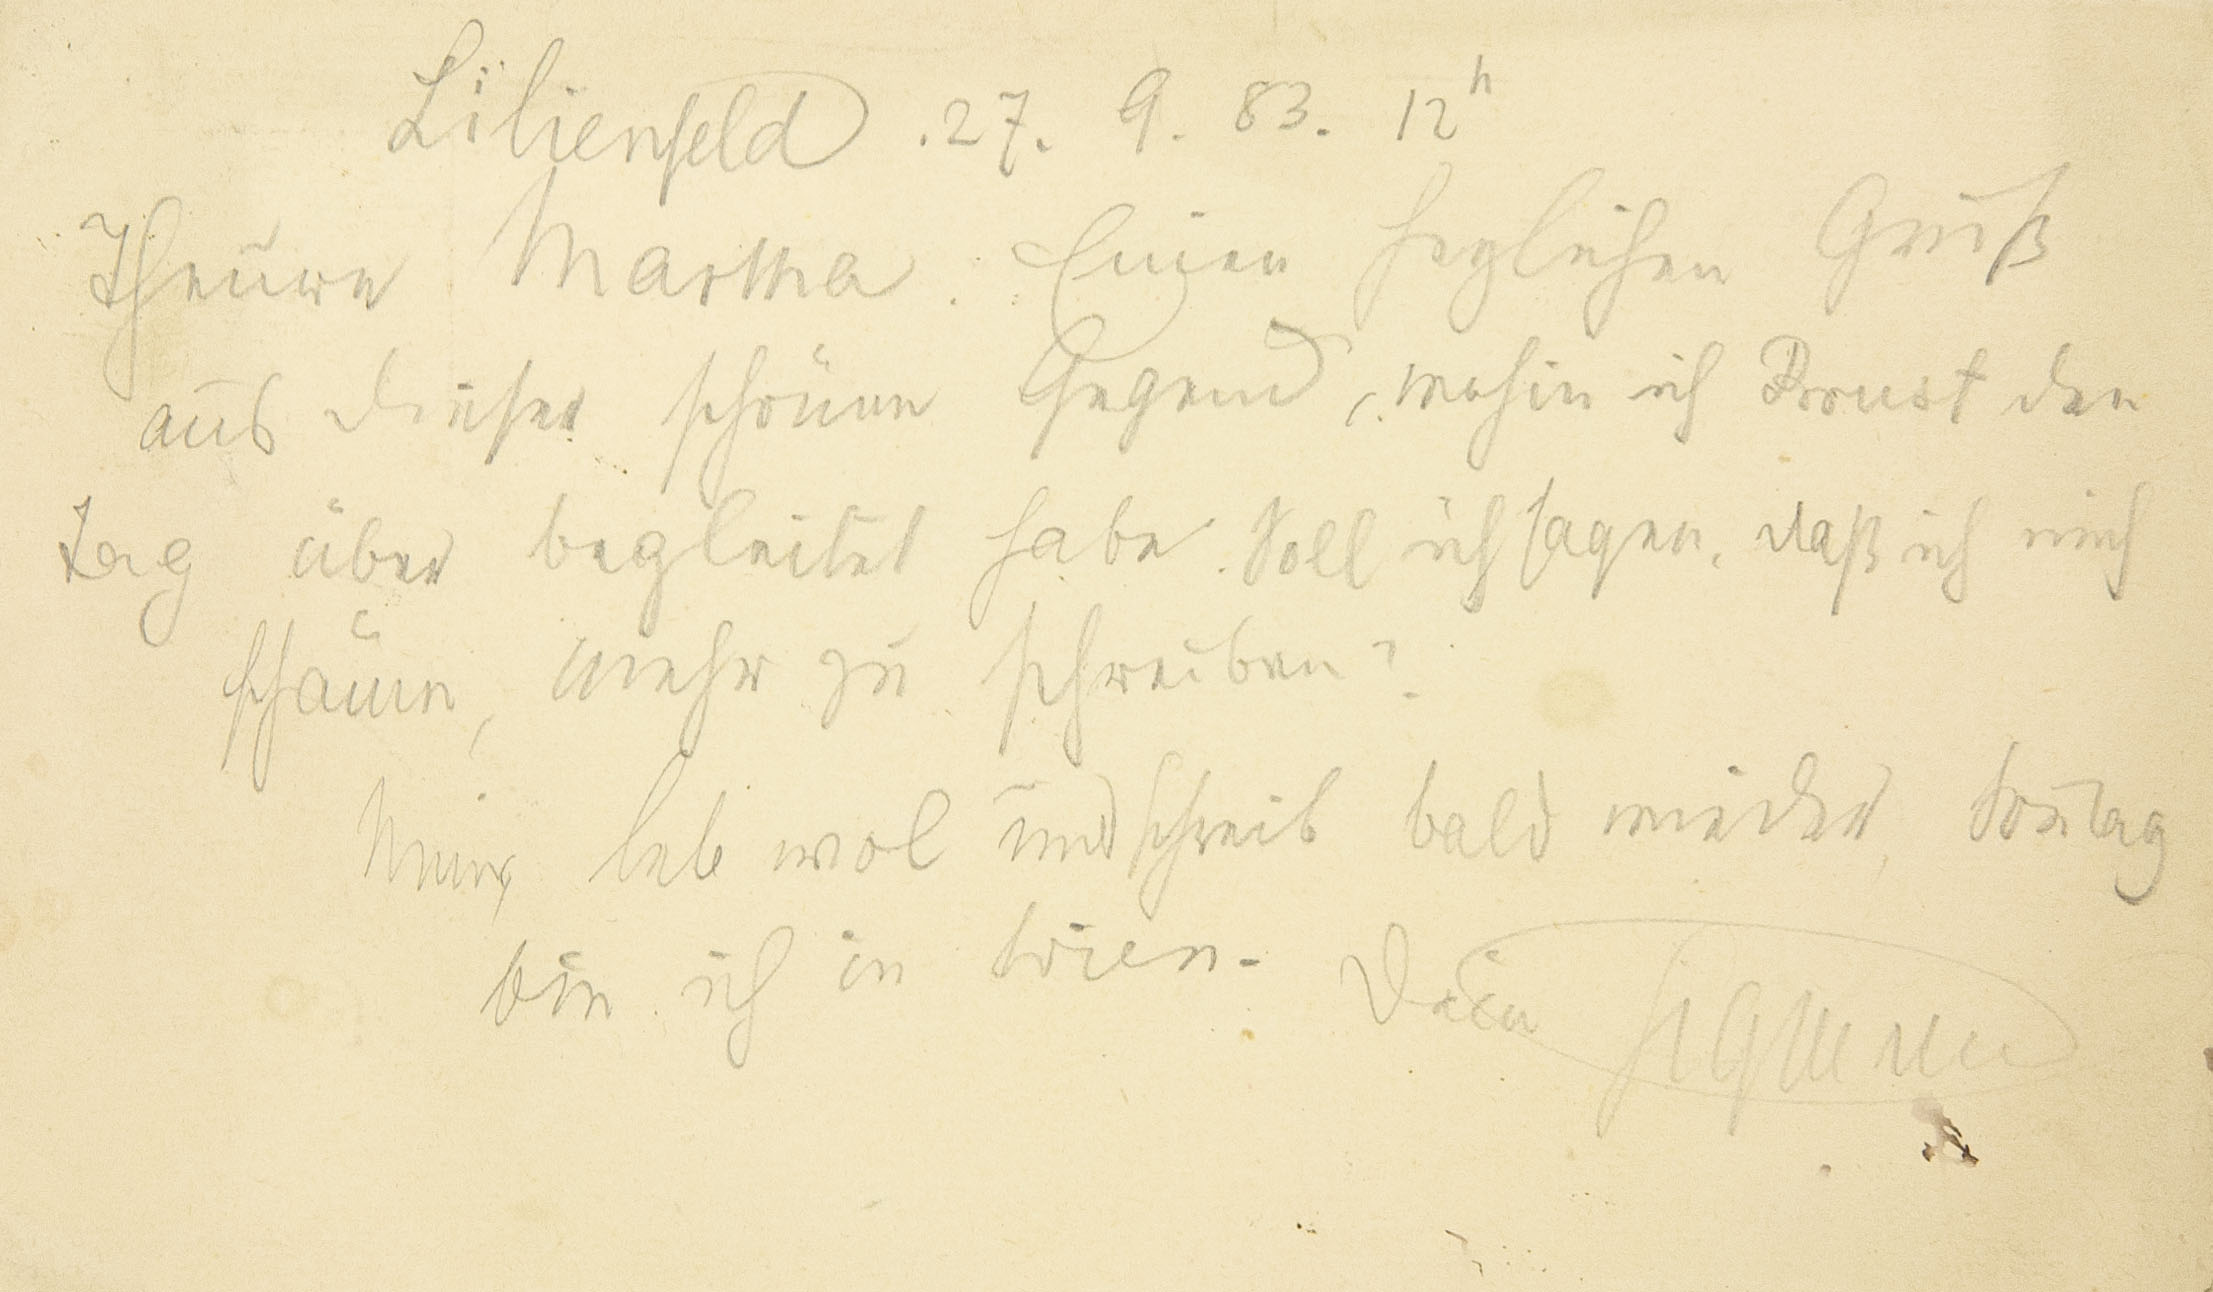 Lilienfeld .27. 9. 83. 12h
Theure Martha. Einen herzlichen Gruß
aus dieser schönen Gegend, wohin ich Proust den
Tag über begleitet habe. Soll ich sagen, daß ich mich
schäme, mehr zu schreiben?
leb wol und schreib bald wieder, Sonntag
bin ich in Wien. Dein Sigmund